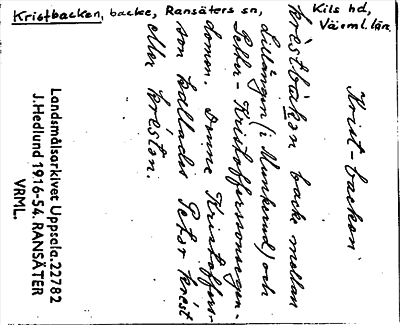 Kristbacken, backe, Ransäters sn,
Kils hd,
Värml. län,
Krist-backen
krèstbàkən backe mellan
Lillängen (i Munkerud) och
Petter-Kristofferssonsegen-
domen. Denne Kristoffers-
son kallades Petər krest
eller krestən.
Landsmålsarkivet Uppsala. 22782
J. Hedlund 1916-54. RANSÄTER
VRML.